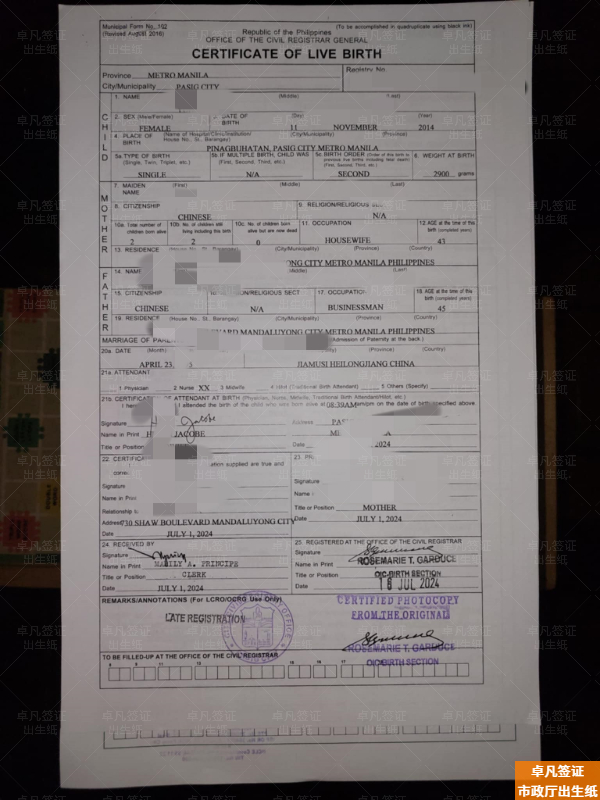 Municipal Form No. 102
(Revised August 2016)
(To be accomplished in quadruplicate using black ink)
Republic of the Philippines
OFFICE OF THE CIVIL REGISTRAR GENERAL
CERTIFICATE OF LIVE BIRTH
Province METRO MANILA
Registry No.
City/Municipality PASIG CITY
CHILD
1. NAME (Middle) (Last)
2. SEX (Male/Female) DATE OF BIRTH (Day) (Year)
FEMALE 11 NOVEMBER 2014
4. PLACE OF BIRTH (Name of Hospital/Clinic/Institution/ House No., St., Barangay) (City/Municipality) (Province)
PINAGBUHATAN, PASIG CITY METRO MANILA
5a TYPE OF BIRTH (Single, Twin, Triplet, etc.) 5b IF MULTIPLE BIRTH, CHILD WAS (First, Second, Third, etc.) 5c BIRTH ORDER (Order of this birth to previous live births including fetal death) (First, Second, Third, etc.) 6. WEIGHT AT BIRTH
SINGLE N/A SECOND 2900 grams
MOTHER
7. MAIDEN NAME (First) (Middle) (Last)
8. CITIZENSHIP 9. RELIGION/RELIGIOUS
CHINESE N/A
10a. Total number of children born alive 10b. No. of children still living including this birth 10c. No. of children born alive but are now dead 11. OCCUPATION 12. AGE at the time of this birth (completed years)
2 2 0 HOUSEWIFE 43
13. RESIDENCE (City/Municipality) (Province) (Country)
CITY METRO MANILA PHILIPPINES
FATHER
14. NAME (Middle) (Last)
15. CITIZENSHIP RELIGION/RELIGIOUS SECT 17. OCCUPATION 18. AGE at the time of this birth (completed years)
CHINESE N/A BUSINESSMAN 45
19. RESIDENCE (House No., St., Barangay) (City/Municipality) (Province) (Country)
MANDALUYONG CITY METRO MANILA PHILIPPINES
MARRIAGE OF Admission of Paternity at the back.)
20a. DATE (Month) (City/Municipality) (Province) (Country)
APRIL 23, JIAMUSI HEILONGJIANG CHINA
21a. ATTENDANT
1 Physician 2 Nurse XX 3 Midwife 4 Hilot (Traditional Birth Attendant) 5 Others (Specify)
21b. OF ATTENDANT AT BIRTH (Physician, Nurse, Midwife, Traditional Birth Attendant/Hilot, etc.)
I attended the birth of the child who was born alive at 08:39AM am/pm on the date of birth specified above
Signature
Name in Print JACOBE
Title or Position Date 2024
22. supplied are true and
Signature
Name in Print
Relationship to
Address 730 SHAW BOULEVARD MANDALUYONG CITY
Date JULY 1, 2024
23.
Signature
Name
Title or Position MOTHER
Date JULY 1, 2024
24. RECEIVED BY
Signature
Name in Print MARILY A. PRINCIPE
Title or Position CLERK
Date JULY 1, 2024
25. REGISTERED AT THE OFFICE OF THE CIVIL REGISTRAR
Signature
Name in Print ROSEMARIE T. GARDUCE
Title or Position OIC-BIRTH SECTION
Date 16 JUL 2024
REMARKS/ANNOTATIONS (For LCRO/OCRG Use Only)
LATE REGISTRATION
CERTIFIED PHOTOCOPY
FROM THE ORIGINAL
ROSEMARIE T. GARDUCE
OIC-BIRTH SECTION
TO BE FILLED-UP AT THE OFFICE OF THE CIVIL REGISTRAR
卓凡签证
出生纸
卓凡签证
市政厅出生纸